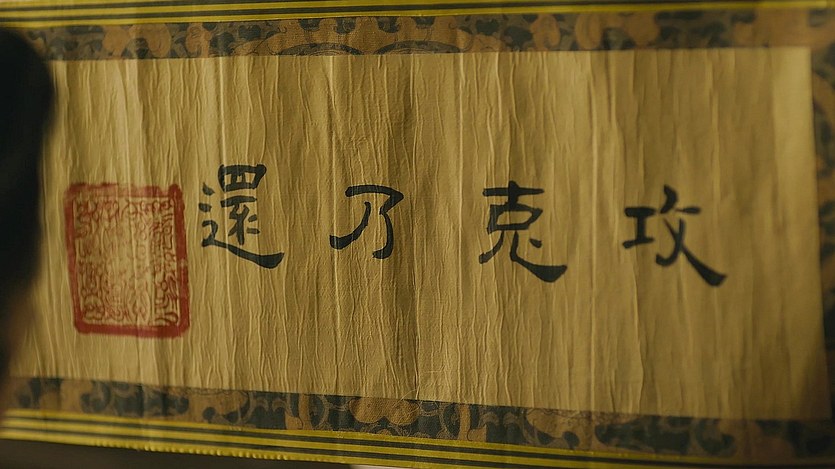 攻克乃還